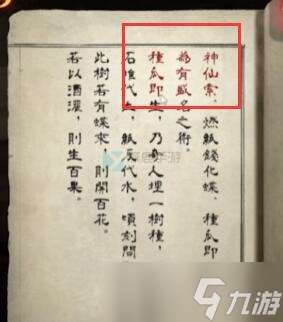 神仙索，燃紙錢化蝶，種瓜即
為有盛名之術。
種瓜即生，乃奇人埋一樹種，
石堆代土，紙灰代水，頃刻間
此樹若有蝶來，則開百花。
若以酒灌，則生百果。
九游